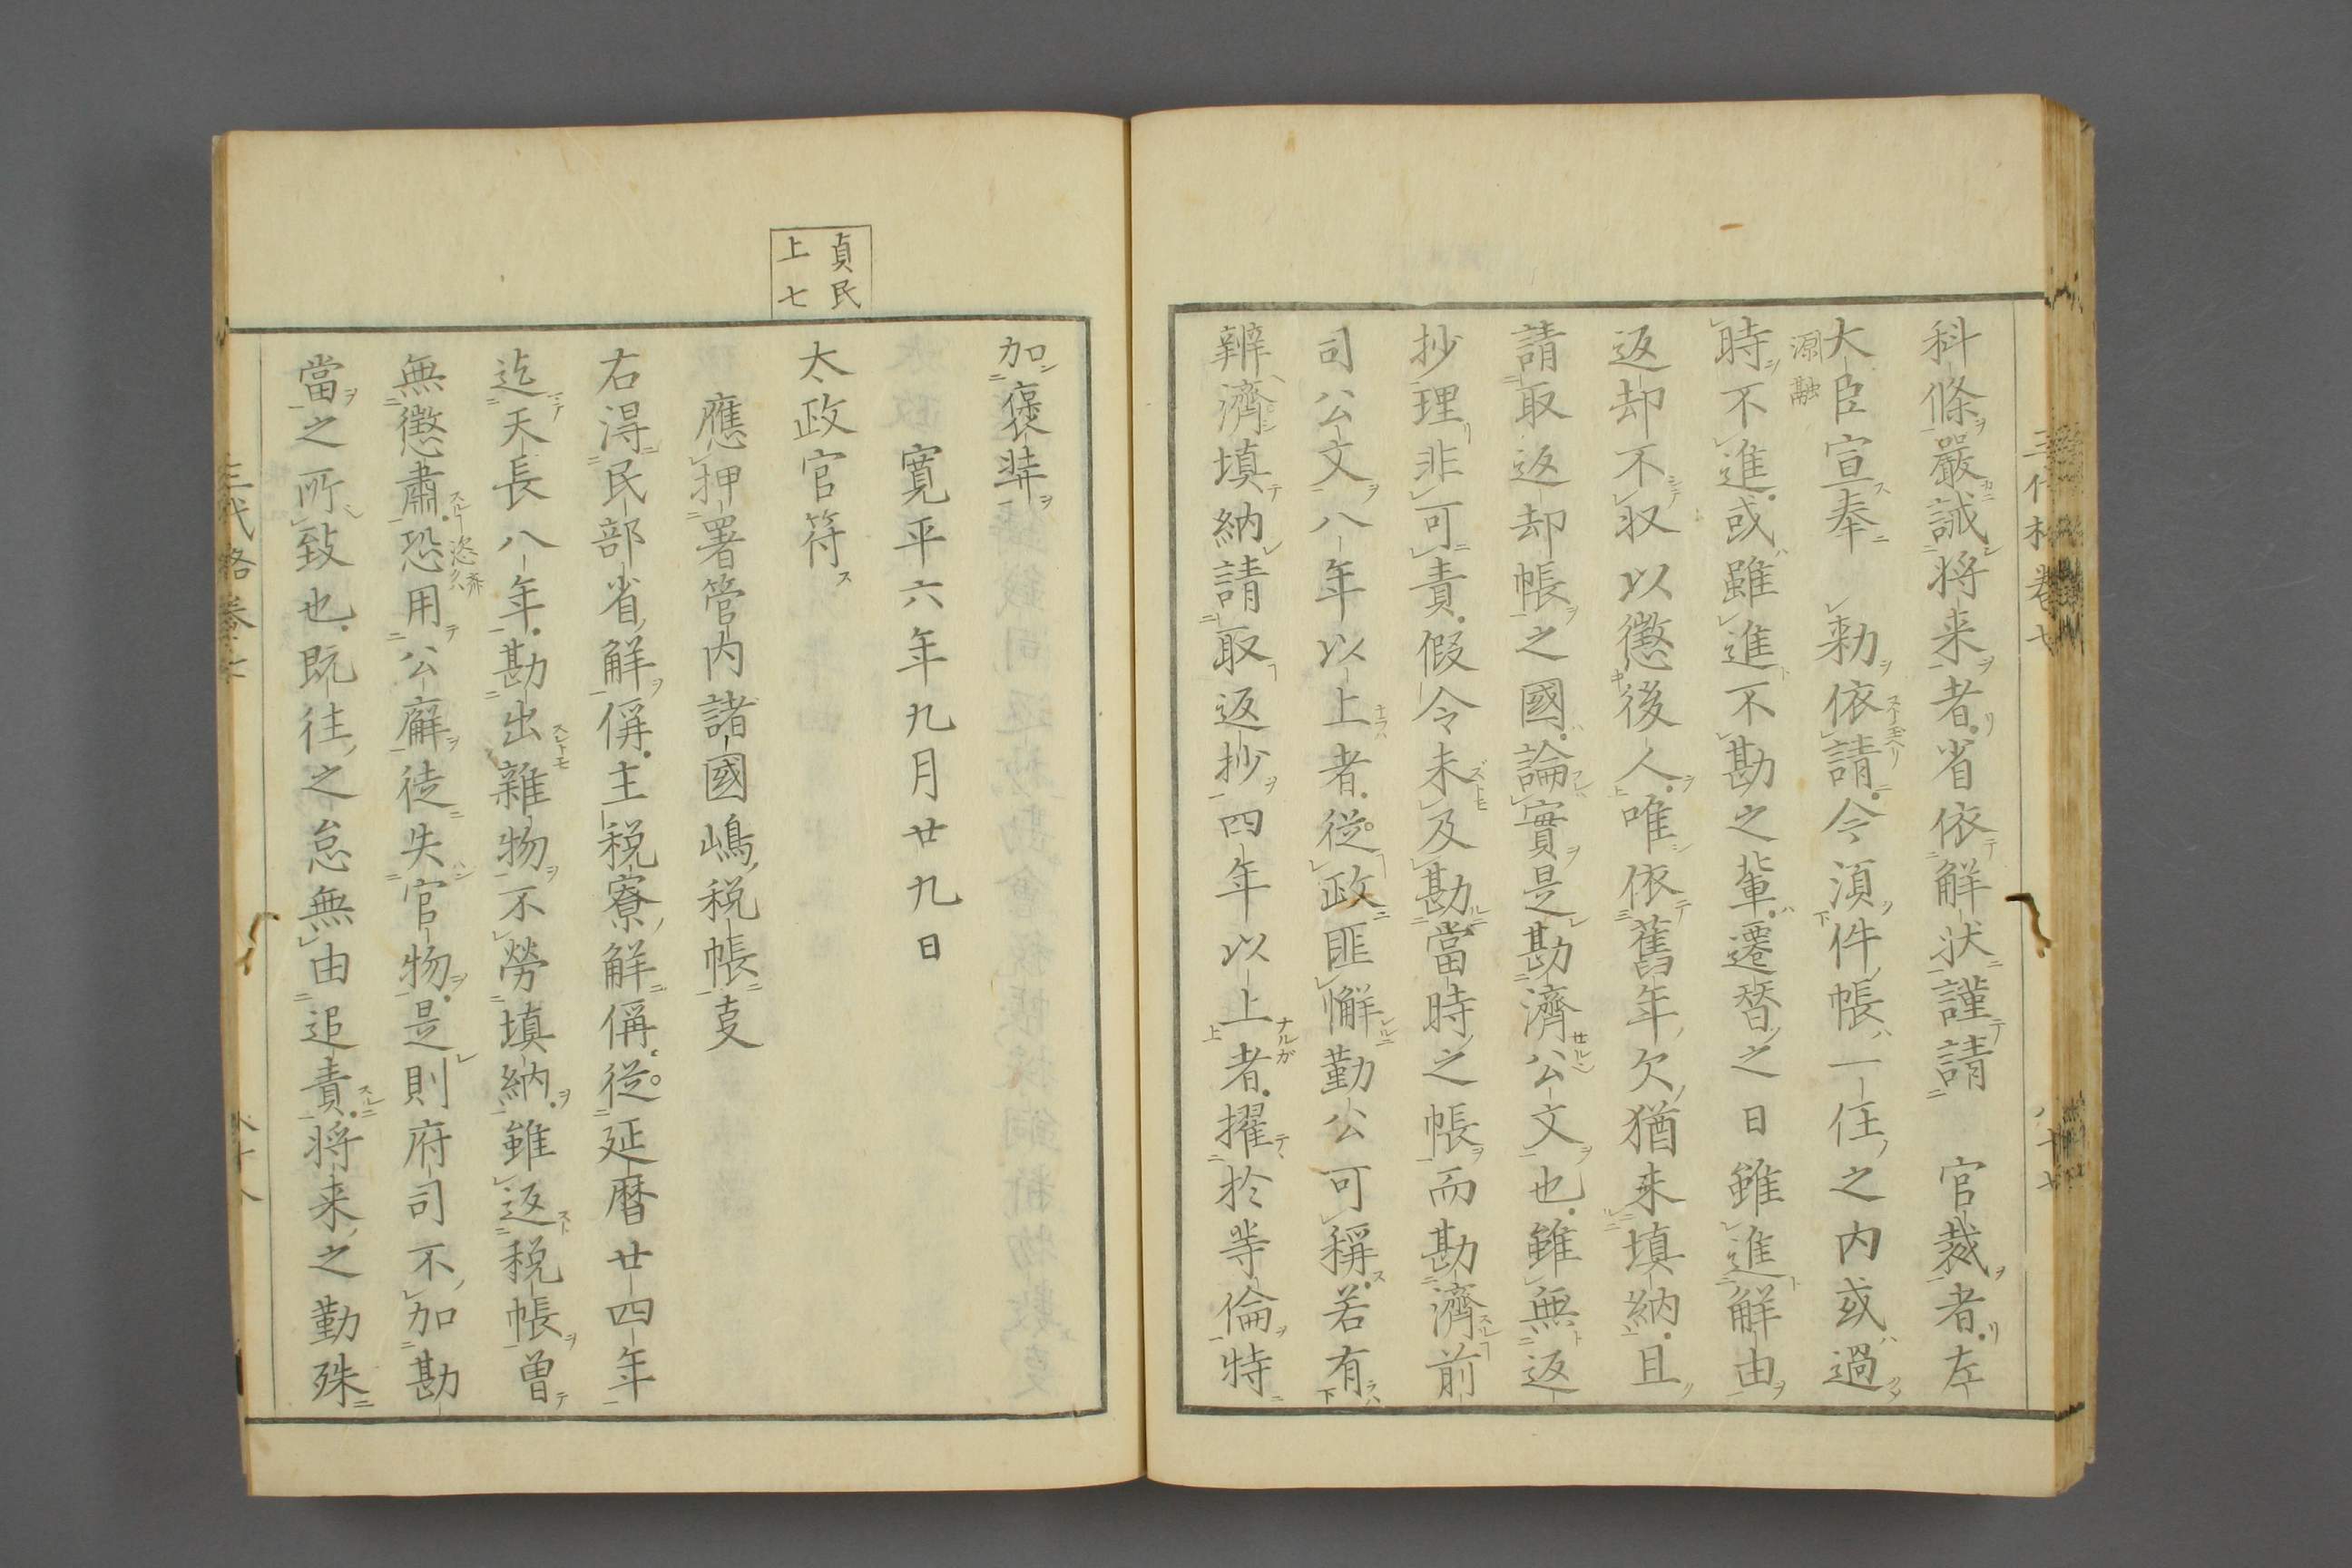 科條嚴誡将来者省依解状謹請　官裁者左
大臣宣奉　勅依請今須件帳一任之内或過
源融
時不進或雖進不勘之輩遷替之日雖進解由
返却不収以懲後人唯依舊年欠猶未填納且
請取返却帳之國論實是勘濟公文也雖無返
抄理非可責假令未及勘當時之帳而勘濟前
司公文八年以上者從政匪懈勤公可稱若有
辨濟填納請取返抄四年以上者擢於等倫特
加褒奨
寛平六年九月廿九日
貞民
上七
太政官符
應押署管内諸國嶋税帳㕝
右得民部省解偁主税寮解偁從延暦廿四年
迄天長八年勘出雜物不勞填納雖返税帳曽
無懲肅恐用公廨徒失官物是則府司不加勘
當之所致也既往之怠無由追責将来之勤殊